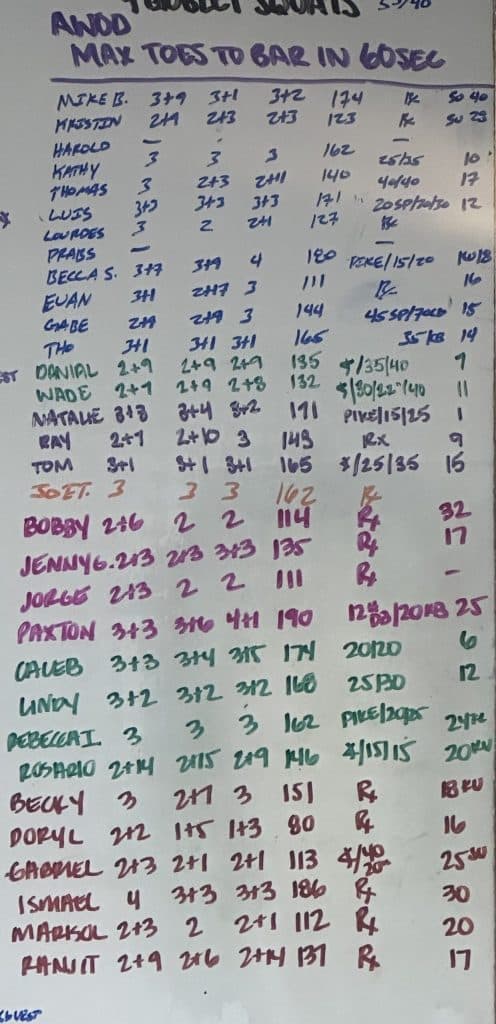 GOBLET SQUATS 55/40
AWOD
MAX TOES TO BAR IN 60SEC
MIKE B. 3+9 3+1 3+2 174 Rx SU 40
KRISTIN 2+9 2+3 2+3 123 Rx SU 23
HAROLD —
KATHY 3 3 3 162 25/25 10
THOMAS 3 2+3 2+11 140 40/40 17
LUIS 3+3 3+3 3+3 171 20SP/20/30 12
LOURDES 3 2 2+1 127 Rx
PRABS — —
BECCA S. 3+7 3+9 4 180 PIKE/15/20
EVAN 3+1 2+17 3 111 Rx 16
GABE 2+9 2+9 3 144 45SP/70LB 15
THO 3+1 3+1 3+1 165 35KB 14
DANIAL 2+9 2+9 2+9 135 /35/40 9
WADE 2+7 2+9 2+8 132 11
NATALIE 3+3 3+4 3+2 191 PIKE/15/25 1
RAY 2+7 2+10 3 143 RX 9
TOM 3+1 3+1 3+1 165 /25/35 15
JOE T. 3 3 3 162 Rx
BOBBY 2+6 2 2 114 Rx 32
JENNY G. 2+3 2+3 3+3 135 Rx 17
JORGE 2+3 2 2 111 Rx —
PAXTON 3+3 3+6 4+1 190 25
CALEB 3+3 3+4 3+5 174 20/20 6
LINDY 3+2 3+2 3+2 168 25/30 12
REBECCA I. 3 3 3 162
ROSARIO 2+14 2+15 2+9 146 /15/15
BECKY 3 2+7 3 151 Rx
DORYL 2+2 1+5 1+3 80 Rx 16
GABRIEL 2+3 2+1 2+1 113 25
ISMAEL 4 3+3 3+3 186 Rx 30
MARISOL 2+3 2 2+1 112 Rx 20
RANJIT 2+9 2+6 2+14 137 Rx 17